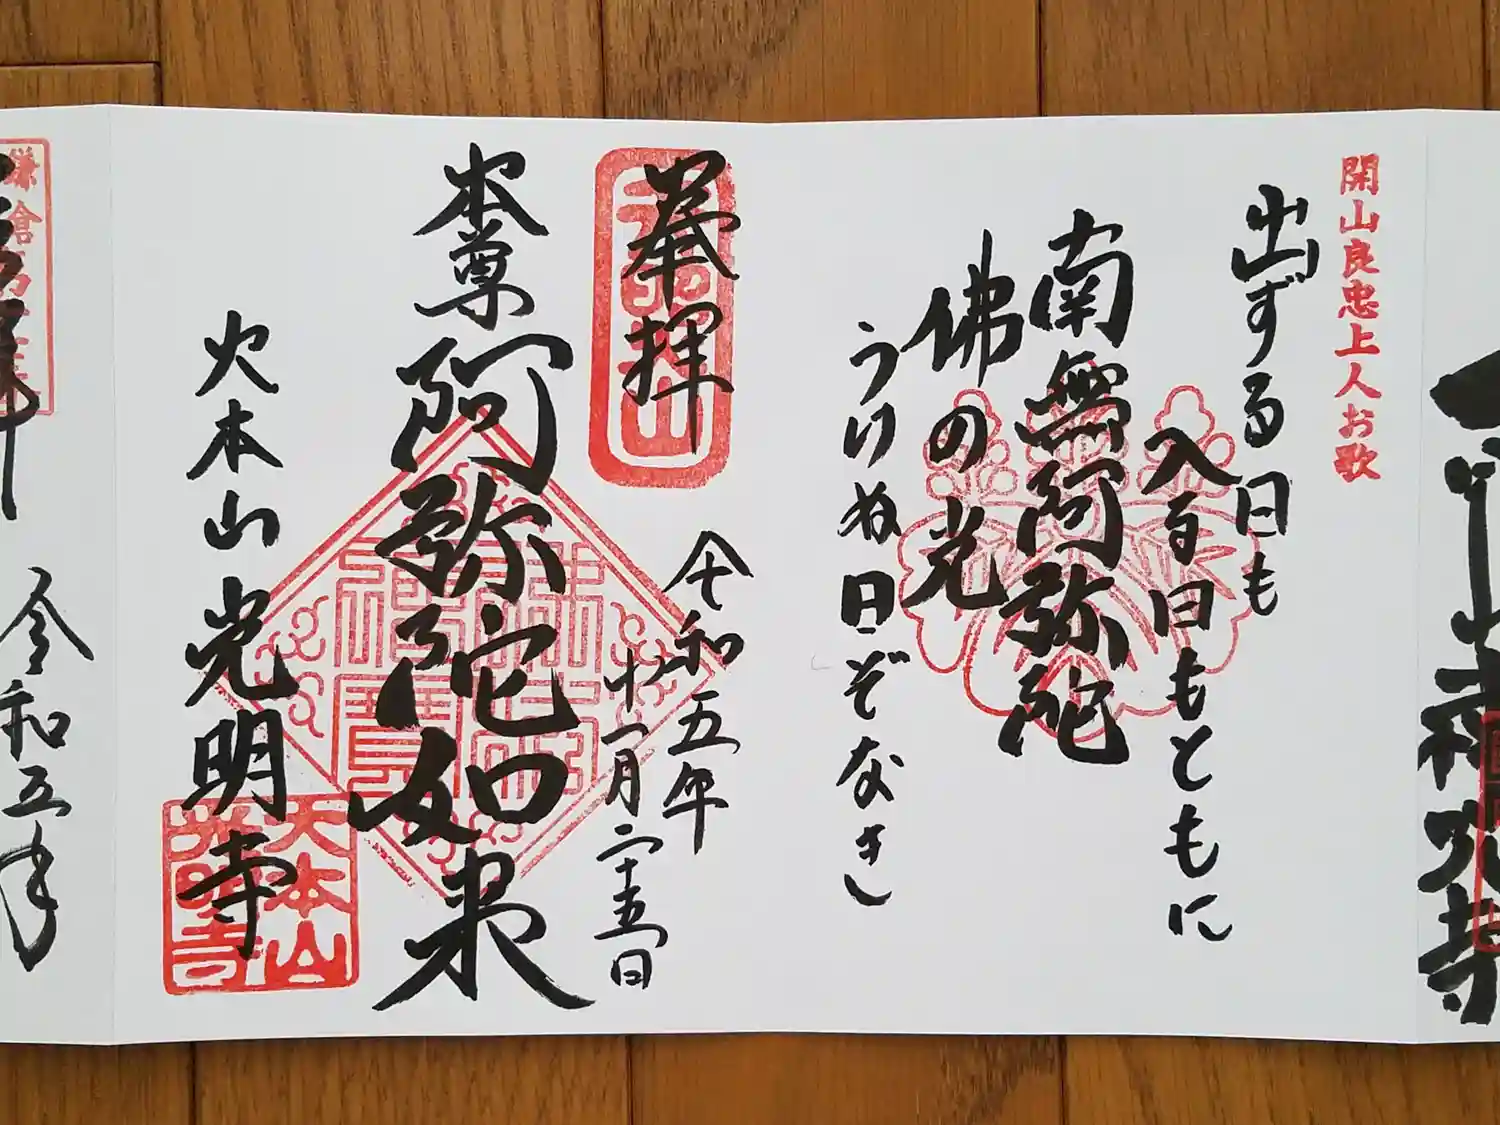 開山良忠上人お歌
出ずる日も
入る日もともに
南無阿弥陀
佛の光
うけぬ日ぞなき
奉拝
令和五年
十一月二十五日
本尊阿弥陀如来
大本山光明寺
大本山
光明寺
鎌倉
令和五年